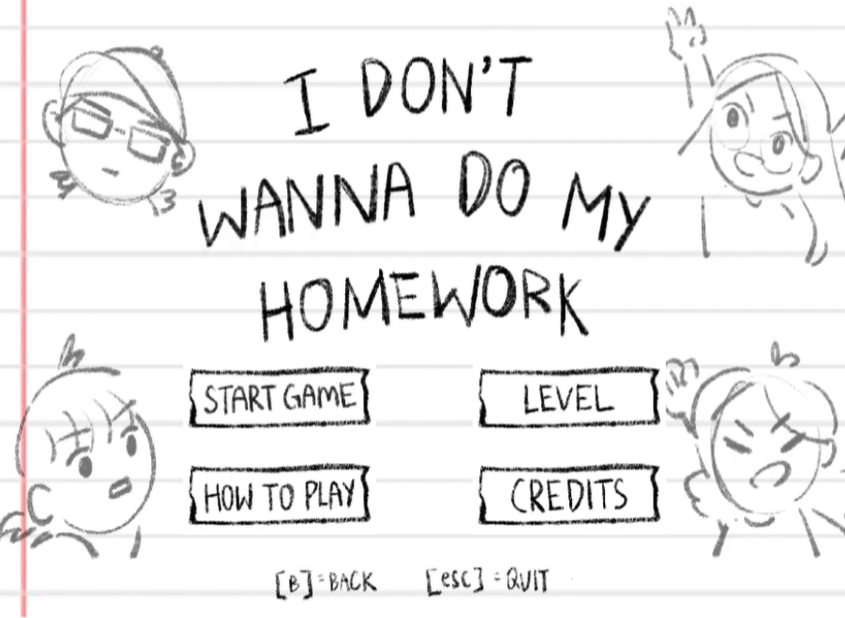 I DON'T
WANNA DO MY
HOMEWORK
START GAME
LEVEL
HOW TO PLAY
CREDITS
[B]=BACK
[esc]=QUIT